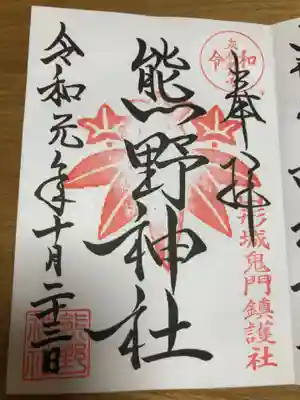 奉拝
山形城鬼門鎮護社
熊野神社
令和元年十月二十三日